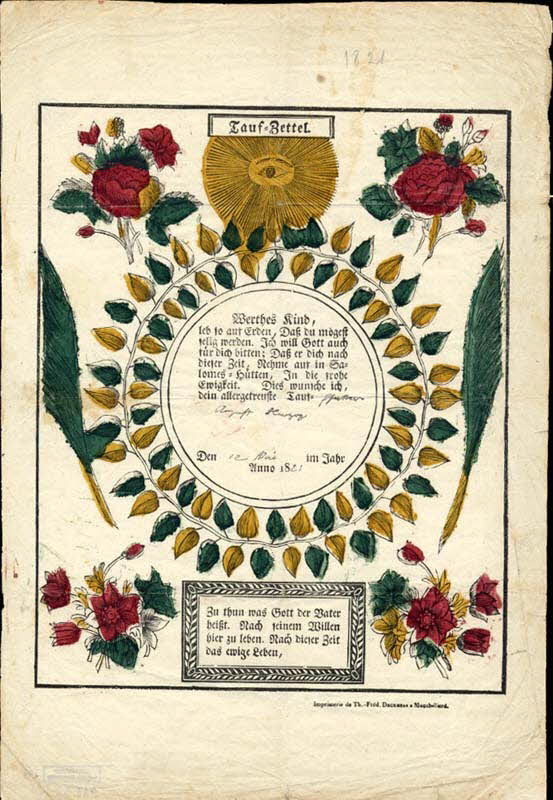 1821
Tauf-Zettel.
Werthes Kind,
leb so auf Erden, Daß du mögest
selig werden. Ich will Gott auch
für dich bitten: Daß er dich nach
dieser Zeit, Nehme auf in Sa-
lomes-Hütten, In die frohe
Ewigkeit. Dies wunsche ich,
dein allergetreuste Tauf-
August
Den 12 im Jahr
Anno 1821
Zu thun was Gott der Vater
heißt. Nach seinem Willen
hier zu leben. Nach dieser Zeit
das ewige Leben,
Imprimerie de Th.-Fréd. Deckherr a Montbéliard.